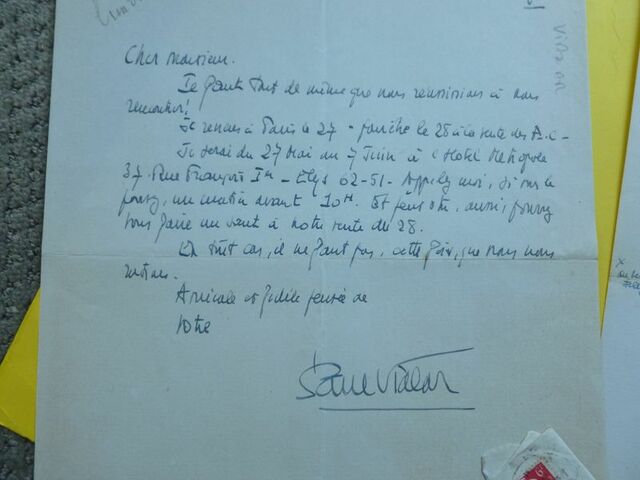 Cher Monsieur.
Il faut tout de même que nous réussissions à nous
rencontrer!
Je reviens à Paris le 27 - le 28 à la vente des A.C -
Je serai du 27 Mai au 7 Juin à l'Hotel Métropole
37 Rue François Ier - Elys 62-51. Appelez moi, si vous le
pouvez, un matin avant 10H. Et peut être, aussi, pourrez
vous faire un saut à notre vente du 28.
En tout cas, il ne faut pas, cette fois, que nous nous
Amicale et fidèle pensée de
Votre
Paul Vialar
Vialar